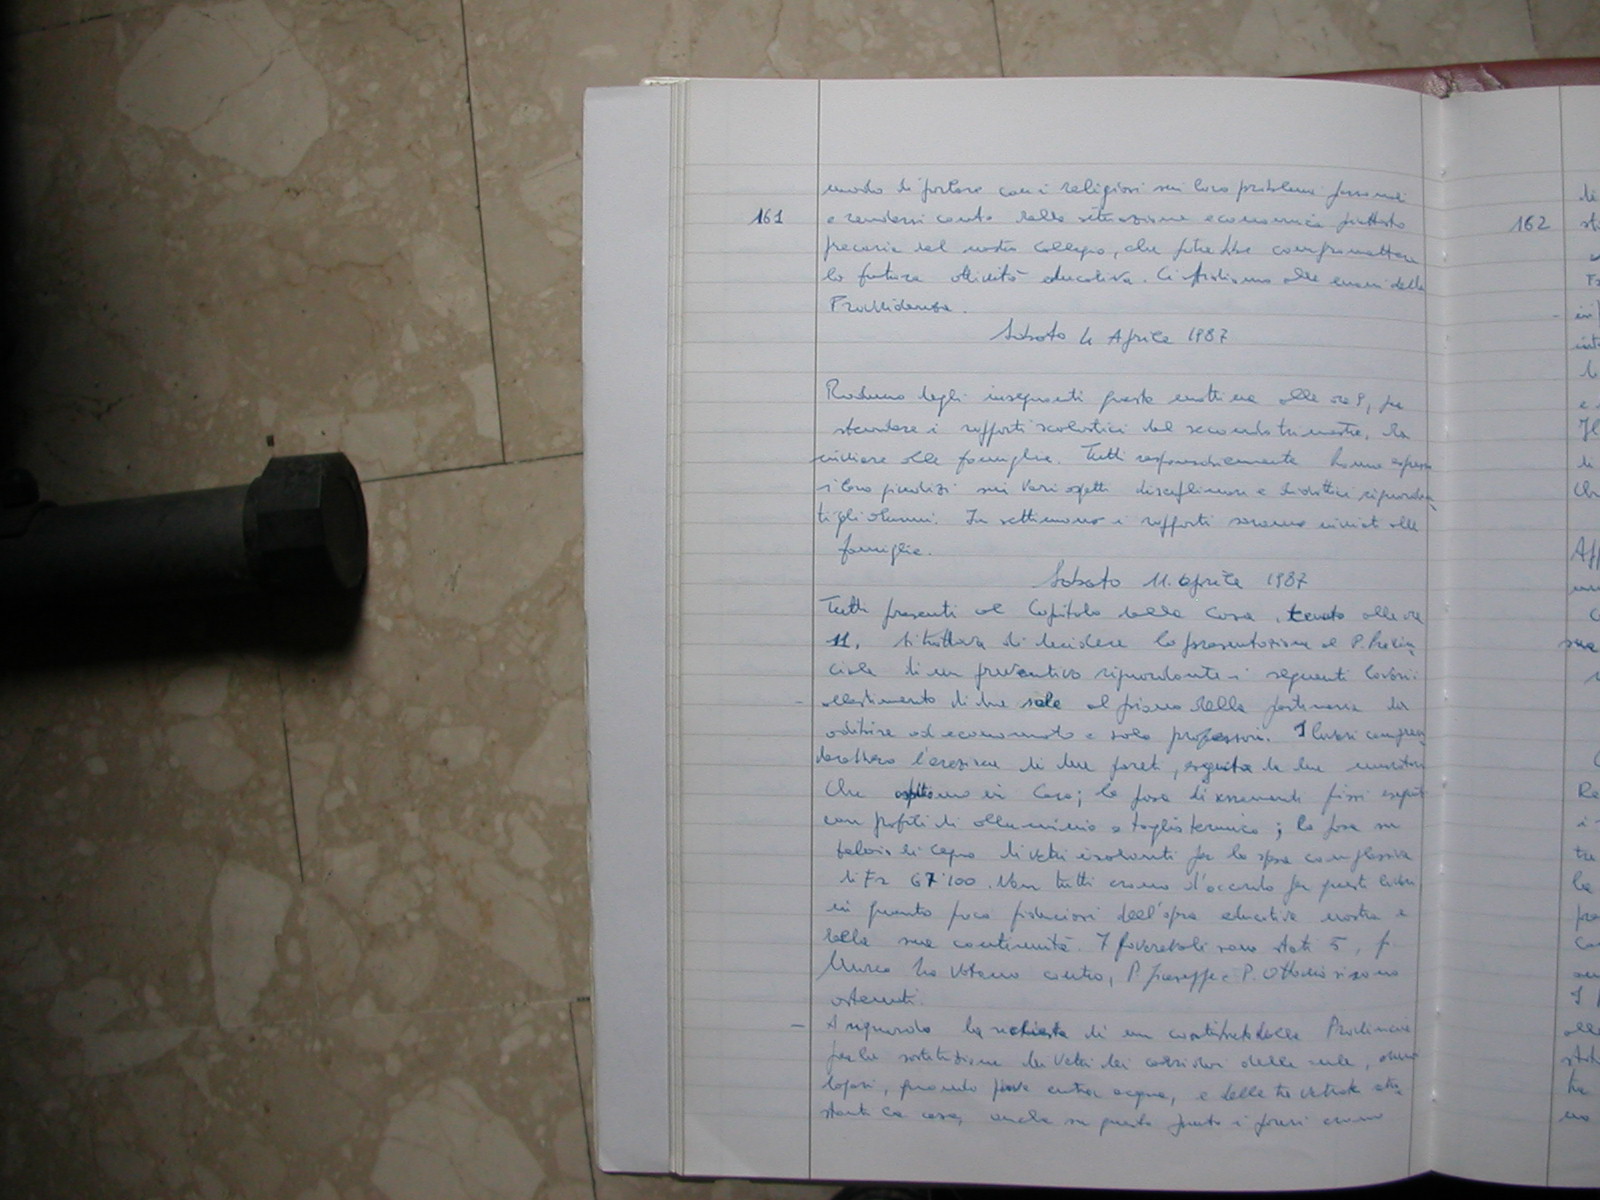 modo di parlare con i religiosi sui loro problemi personali
161
e rendersi conto della situazione economica piuttosto
precaria del nostro Collegio, che potrebbe compromettere
la futura attività educativa. Ci affidiamo alle mani della
Provvidenza.
Sabato 4 Aprile 1987
Raduno degli insegnanti questa mattina alle ore 9, per
stendere i rapporti scolastici del secondo trimestre, da
inviare alle famiglie. Tutti responsabilmente hanno espresso
i loro giudizi sui vari aspetti disciplinari e didattici riguardan
ti gli alunni. In settimana i rapporti saranno inviati alle
famiglie.
Sabato 11. aprile 1987
Tutti presenti al Capitolo della Casa, tenuto alle ore
11. Si trattava di decidere la presentazione al P. Provin
ciale di un preventivo riguardante i seguenti lavori:
- allestimento di due sale al piano della portineria da
adibire ad economato e sala professori. I lavori compren
derebbero l'erezione di due pareti, eseguita da due muratori
che ospitiamo in Casa; la posa di serramenti fissi eseguiti
con profili di alluminio a taglio termico; la posa su
telai di vetri isolanti per la spesa complessiva
di Fr 67'100. Non tutti erano d'accordo per questi lavori
in quanto poco fiduciosi dell'opera educativa nostra e
della sua continuità. I favorevoli sono stati 5, p.
Marco ha votato contro, P. Giuseppe e P. Ottavio si sono
astenuti.
- A riguardo la richiesta di un contributo della Provincia
per la sostituzione dei vetri dei corridoi delle aule, ormai
logori, quando piove entra acqua, e delle tre vetrate
anche su questo punto i pareri erano
162